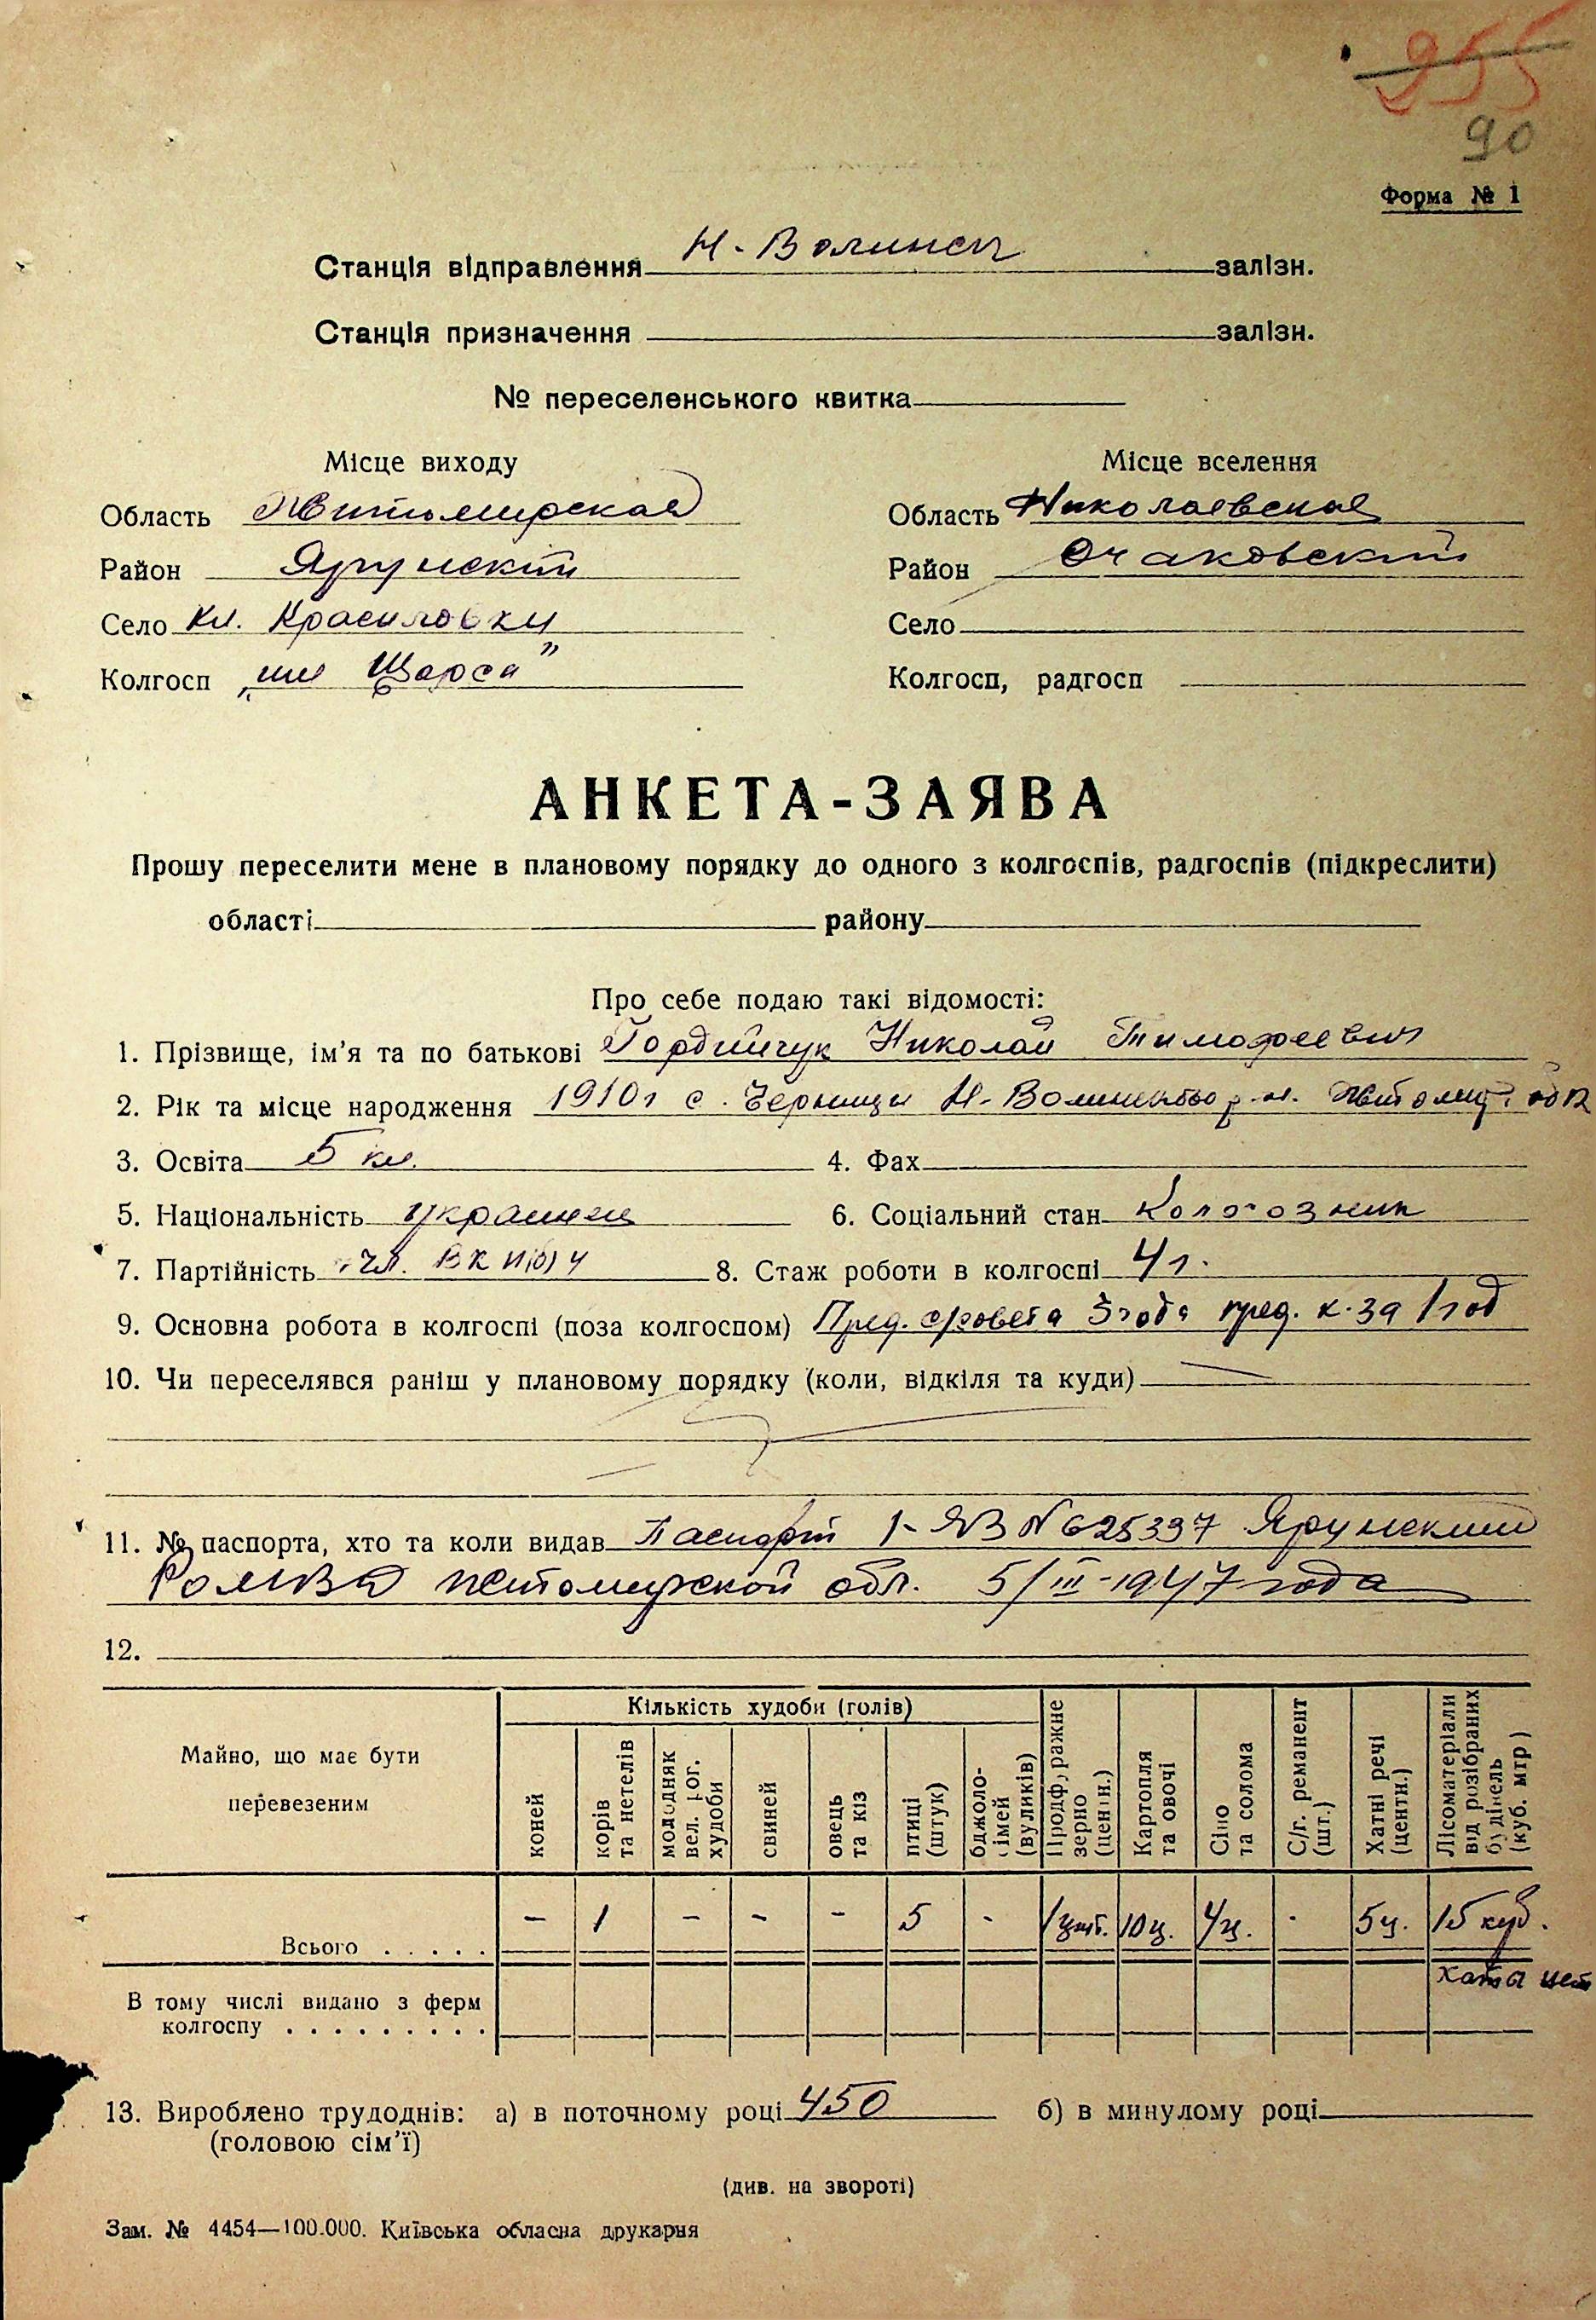 255
90
Форма № 1
Станція відправлення Н-Волинск залізн.
Станція призначення залізн.
№ переселенського квитка
Місце виходу Місце вселення
Область Житомирская Область Николаевская
Район Ярунский Район Очаковский
Село Кл. Красиловку Село
Колгосп „им Щорса" Колгосп, радгосп
АНКЕТА-ЗАЯВА
Прошу переселити мене в плановому порядку до одного з колгоспів, радгоспів (підкреслити)
області району
Про себе подаю такі відомості:
1. Прізвище, ім'я та по батькові Гордийчук Николай Тимофеевич
2. Рік та місце народження 1910г с. Черницы Н-Волинского р-н. Житомир обл
3. Освіта 5 кл. 4. Фах
5. Національність украинец 6. Соціальний стан Колгозник
7. Партійність чл. ВКП(б)У 8. Стаж роботи в колгоспі 4г.
9. Основна робота в колгоспі (поза колгоспом) Пред. с/совета 3 года пред. к-за 1 год
10. Чи переселявся раніш у плановому порядку (коли, відкіля та куди) —
11. № паспорта, хто та коли видав Паспорт 1-ЯВ № 625397 Ярунский
РоМВД Житомирской обл. 5/III-1947 года
12.
Майно, що має бути перевезеним
Кількість худоби (голів)
коней
корів та нетелів
молодняк вел. рог. худоби
свиней
овець та кіз
птиці (штук)
бджоло-сімей (вуликів)
Продфуражне зерно (центн.)
Картопля та овочі
Сіно та солома
С/г. реманент (шт.)
Хатні речі (центн.)
Лісоматеріали від розібраних будівель (куб. мтр)
Всього . . . . . – 1 – – – 5 - 1 цнт. 10ц. 4ц. - 5ц. 15 куб.
хаты нет
В тому числі видано з ферм
колгоспу . . . . . . . . .
13. Вироблено трудоднів: а) в поточному році 450 б) в минулому році
(головою сім'ї)
(див. на звороті)
Зам. № 4454—100.000. Київська обласна друкарня